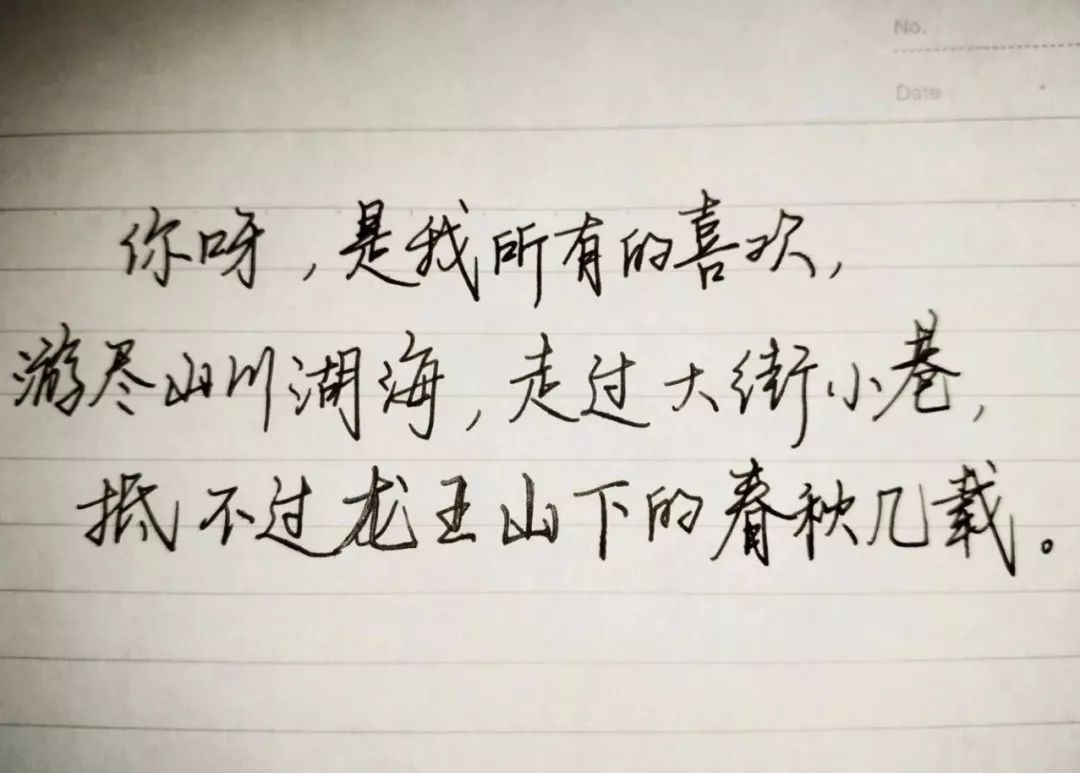 No.
Date
你呀,是我所有的喜欢,
游尽山川湖海,走过大街小巷,
抵不过龙王山下的春秋几载。